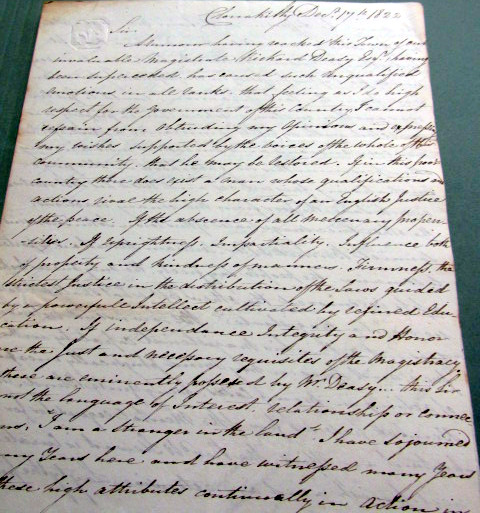 Clonakilty Decr. 17th 1822
Sir
A rumour having reached this Town of our
invaluable Magistrate Richard Deasy Esqr. having
been superceded has caused such unqualified
emotions in all ranks, that feeling as I do high
respect for the government of this Country I cannot
refrain from obtruding my opinions and expressing
my wishes supported by the voices of the whole of this
community, that he may be restored. If in this poor
country there does exist a man whose qualifications and
actions rival the high character of an English Justice
of the peace. If the absence of all mercenary propen
sities. If Uprightness. Impartiality. Influence both
of property and kindness of manners. Firmness. the
strictest Justice in the distribution of the Laws guided
by a powerful Intellect cultivated by refined Edu-
cation. If independance Integrity and Honor
are the just and necessary requisites of the Magistracy
those are eminently possessed by Mr. Deasy... this Sir
not the language of Interest relationship or connec
ns. I am a stranger in the land. I have sojourned
ny Years here and have witnessed many Years
these high attributes continually in action in